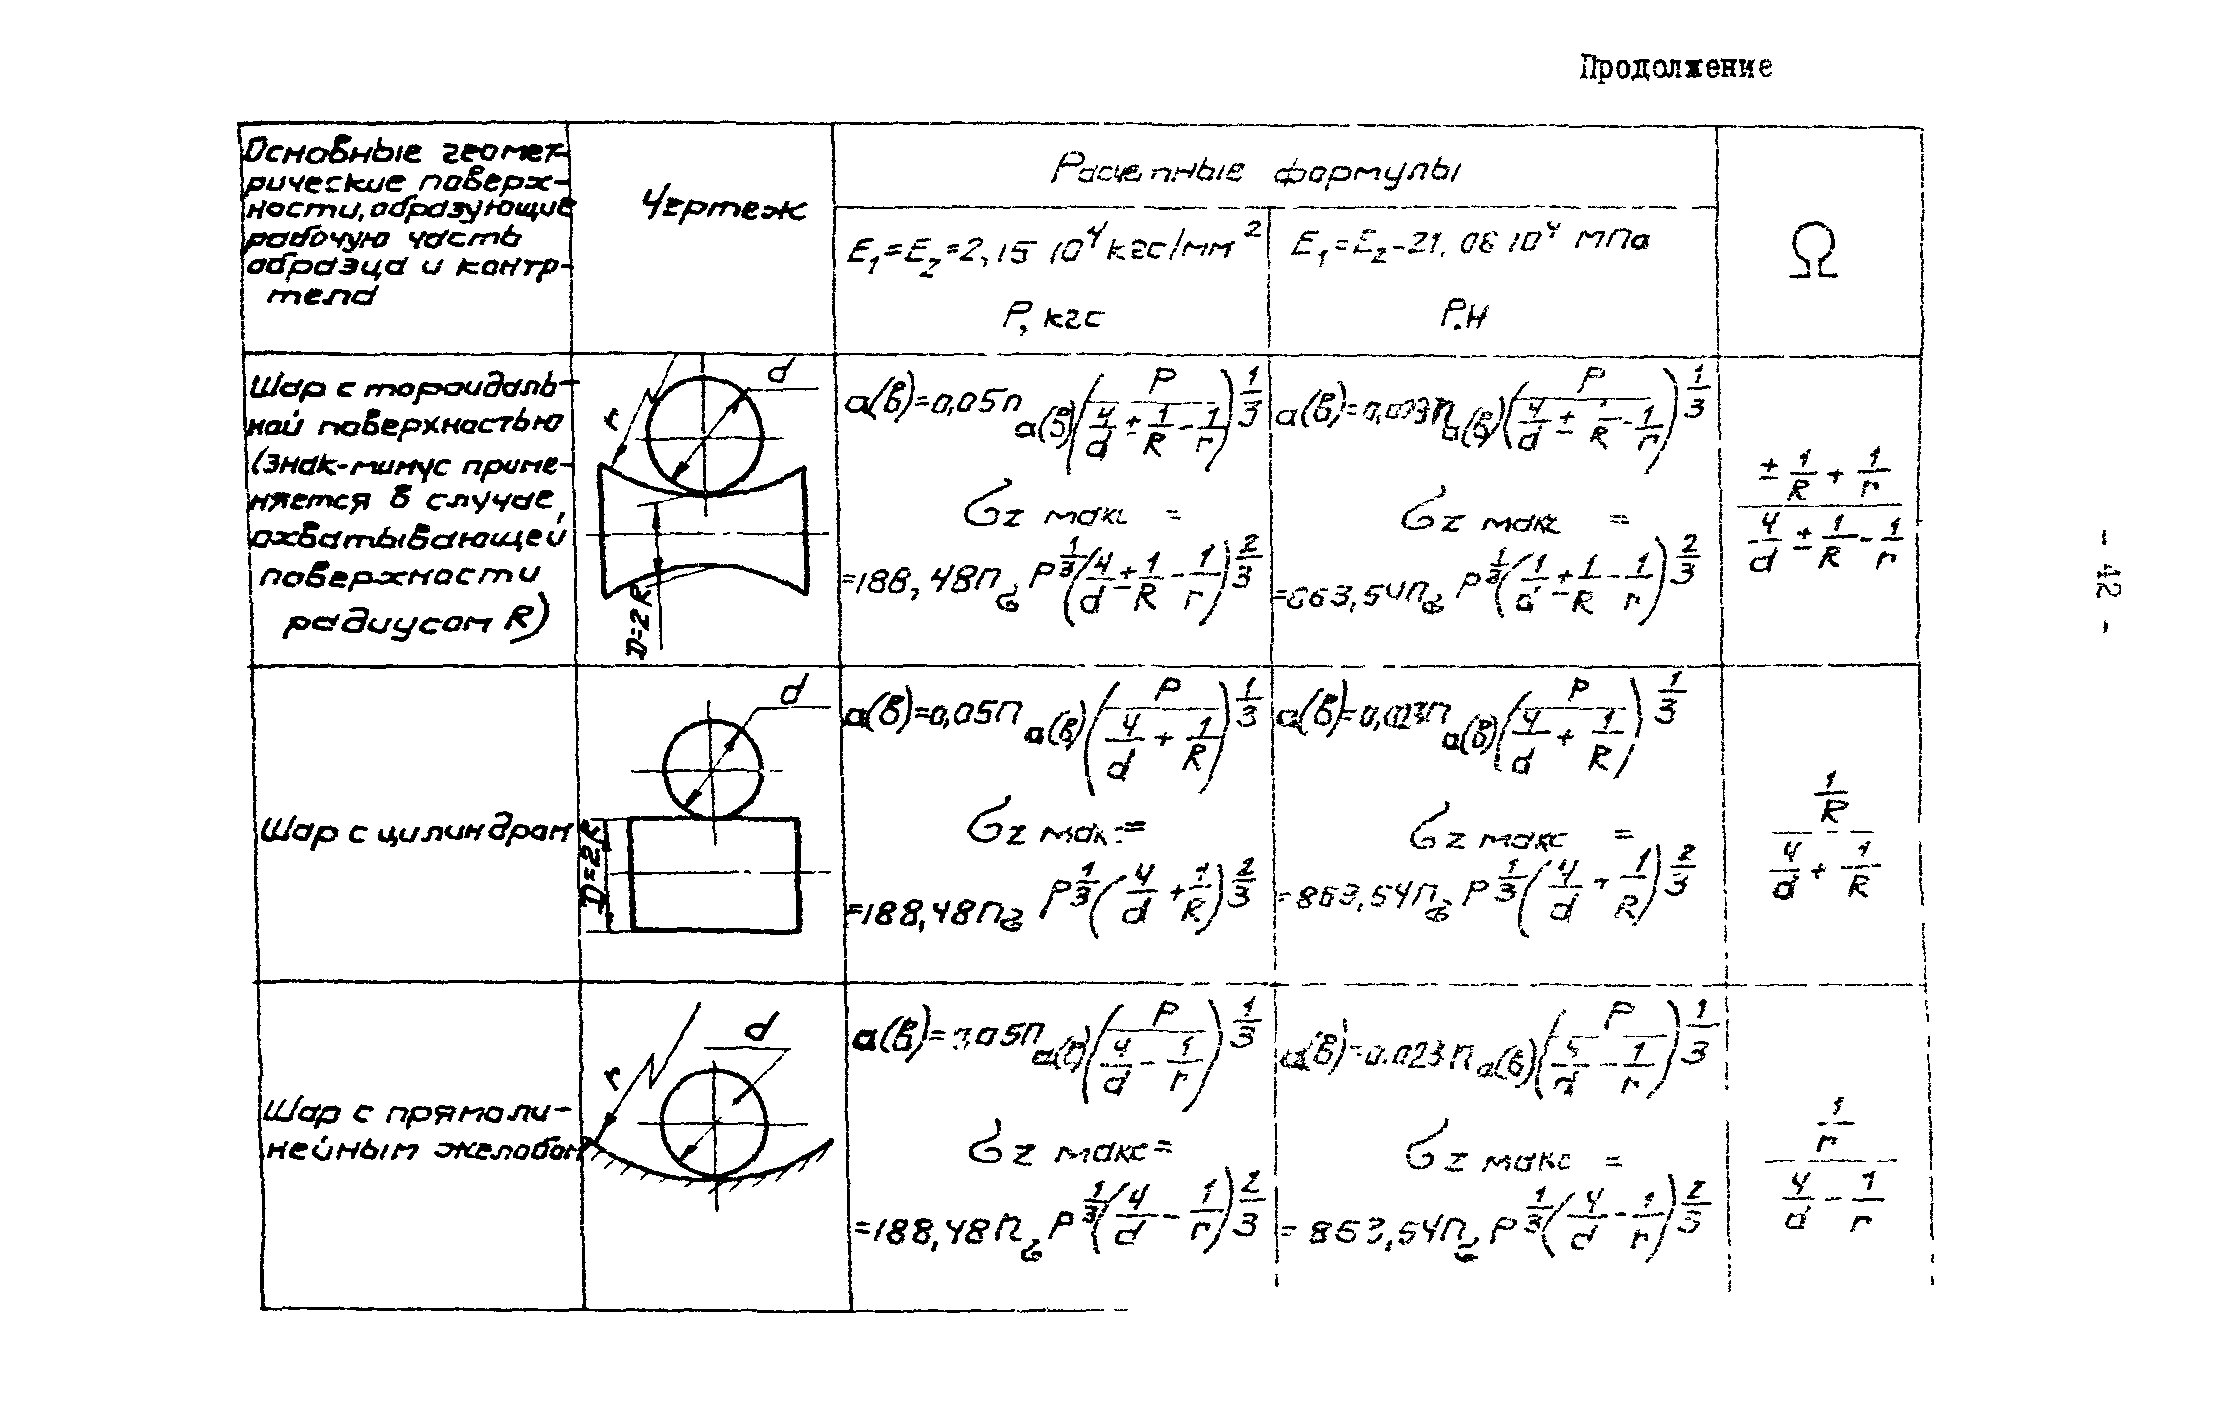 Продолжение
Основные геомет-
рические поверх-
ности, образующие
рабочую часть
образца и контр-
тела
Чертеж
Расчетные формулы
E₁=E₂=2,15 10⁴ кгс/мм²
P, кгс
E₁=E₂-21,06 10⁴ мПа
P.н
Ω
Шар с тороидаль-
ной поверхностью
(знак-минус приме-
няется в случае,
охватывающей
поверхности
радиусом R)
r
d
D=2R
a(в)=0,05п a(в) (P / (4/d ± 1/R - 1/r))^1/3
σz макс =
=188,48пσ P^1/3 (4/d ± 1/R - 1/r)^2/3
a(в)=0,023п a(в) (P / (4/d ± 1/R - 1/r))^1/3
σz макс =
=863,54пσ P^1/3 (1/d ± 1/R - 1/r)^2/3
(± 1/R + 1/r) / (4/d ± 1/R - 1/r)
Шар с цилиндром
d
D=2R
a(в)=0,05п a(в) (P / (4/d + 1/R))^1/3
σz мак:=
=188,48пσ P^1/3 (4/d + 1/R)^2/3
a(в)=0,023п a(в) (P / (4/d + 1/R))^1/3
σz макс =
=863,54пσ P^1/3 (4/d + 1/R)^2/3
(1/R) / (4/d + 1/R)
Шар с прямоли-
нейным желобом
r
d
a(в)=0,05п a(в) (P / (4/d - 1/r))^1/3
σz макс=
=188,48пσ P^1/3 (4/d - 1/r)^2/3
a(в)=0.023п a(в) (P / (4/d - 1/r))^1/3
σz макс =
=863,54пσ P^1/3 (4/d - 1/r)^2/3
(1/r) / (4/d - 1/r)
- 42 -